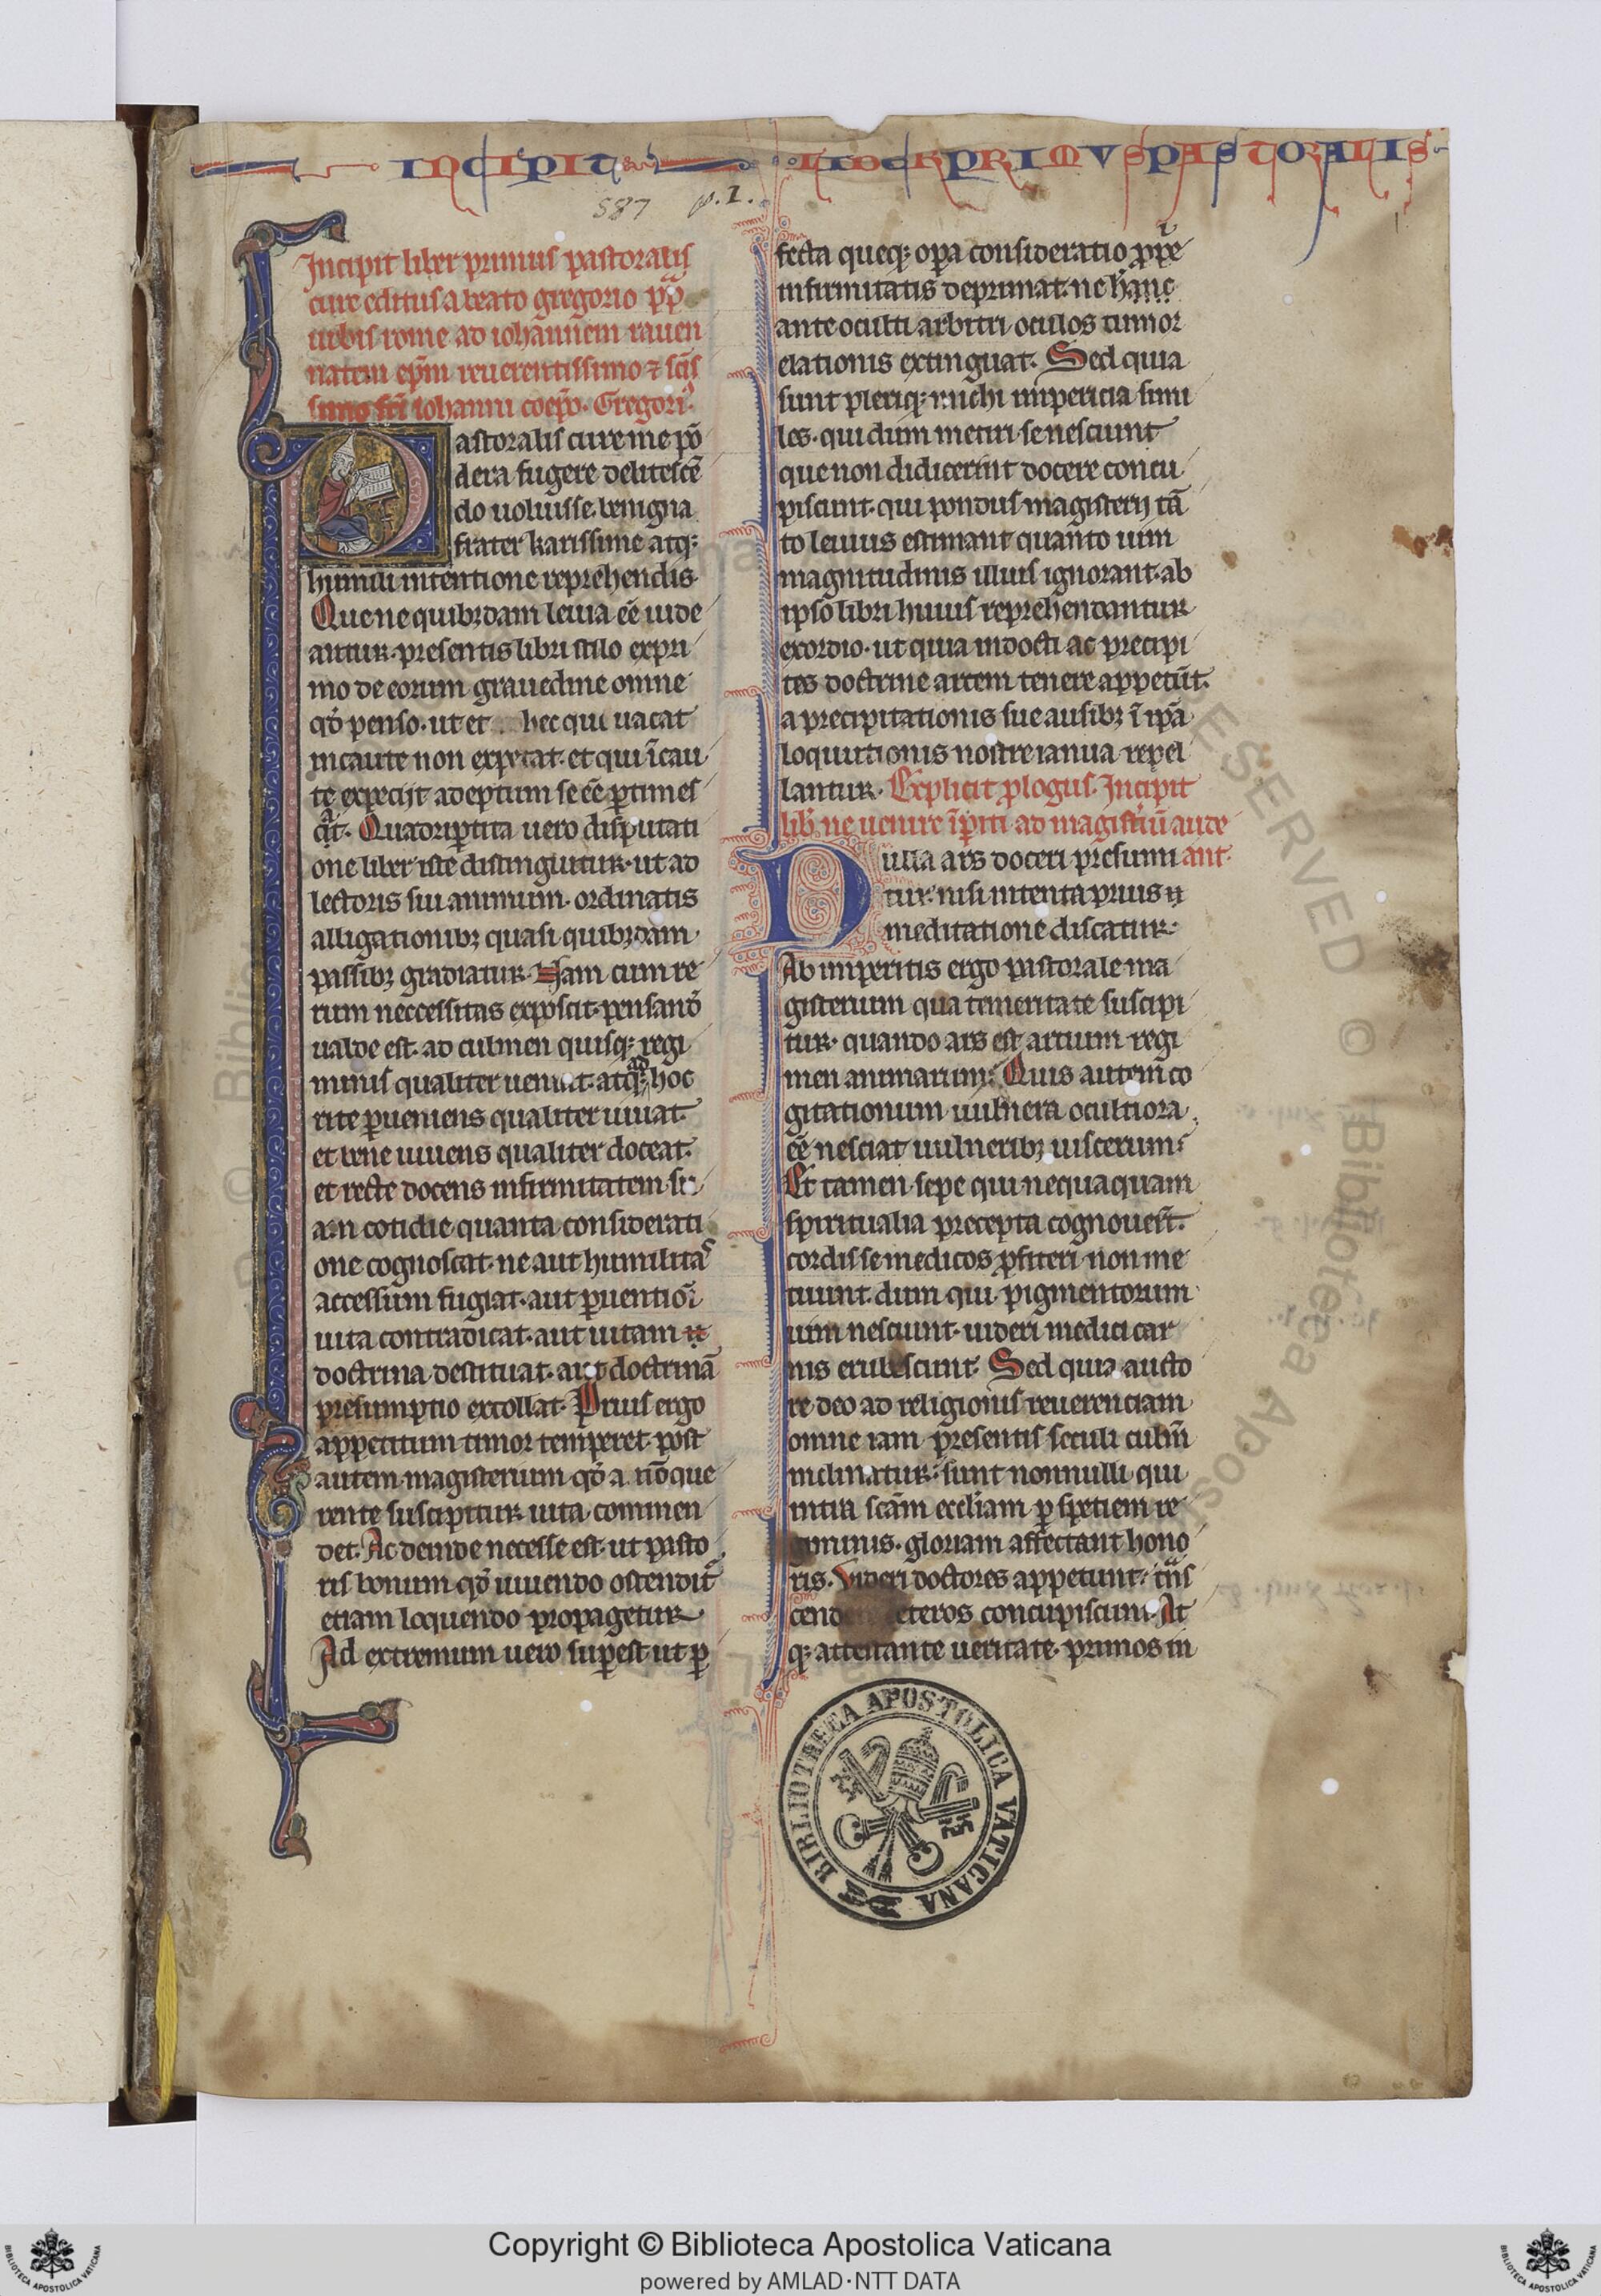 INCIPIT LIBER PRIMVS PASTORALIS
587 p. 1.
Incipit liber primus pastoralis
cure editus a beato gregorio pp̄
urbis rome ad iohannem rauen
natem ep̄m reuerentissimo ⁊ scīs
simo fr̄i iohanni coep̄o. Gregori
Pastoralis cure me pō
dera fugere delitescē
do uoluisse. benigna
frater karissime atq;
humili intentione reprehendis.
Que ne quibȝdam leuia eē uide
antur. presentis libri stilo expri
mo de eorum grauedine omne
qđ penso. ut et hec qui uacat
incaute non expetat. et qui īcau
te expetijt adeptum se eē ꝑtimes
cat. Quadripꝑtita uero disputati
one liber iste distinguitur. ut ad
lectoris sui animum. ordinatis
alligationibȝ quasi quibȝdam
passibȝ gradiatur. Nam cum re
rum neccessitas exposcit. pensanđ
ualde est. ad culmen quisq; regi
minis qualiter ueniat. atq; ad hoc
rite ꝑueniens qualiter uiuat.
et bene uiuens qualiter doceat.
et recte docens infirmitatem su
am cotidie quanta considerati
one cognoscat. ne aut humilitas
accessum fugiat. aut ꝑuentiōi
uita contradicat. aut uitam
doctrina destituat. aut doctrinā
presumptio extollat. Prius ergo
appetitum timor temperet. post
autem magisterium qđ a nō que
rente suscipitur uita commen
det. Ac deinde necesse est. ut pasto
ris bonum qđ uiuendo ostenditur
etiam loquendo propagetur.
Ad extremum uero suꝑest ut ꝑ
fecta queq; oꝑa consideratio ꝓprie
infirmitatis deprimat. ne hanc
ante oculti arbitri oculos tumor
elationis extinguat. Sed quia
sunt pleriq; michi impericia simi
les. qui dum metiri se nesciunt
que non didicerint docere concu
piscunt. qui pondus magisterij tā
to leuius estimant quanto uim
magnitudinis illius ignorant. ab
ipso libri huius reprehendantur
exordio. ut quia indocti ac precipi
tes doctrine arcem tenere appetūt.
a precipitationis sue ausibȝ ī ipā
loquutionis nostre ianua repel
lantur. Explicit ꝓlogus. Incipit
lib̄. ne uenire īꝑiti ad magistiū aude
Nulla ars doceri presumi ant.
tur. nisi intenta prius
meditatione discatur.
Ab imperitis ergo pastorale ma
gisterium qua temeritate suscipi
tur. quando ars est artium regi
men animarum. Quis autem co
gitationum uulnera ocultiora
eē nesciat uulneribȝ uiscerum.
Et tamen sepe qui nequaquam
spiritualia precepta cognouer̄t.
cordis se medicos ꝓfiteri non me
tuunt. dum qui pigmentorum
uim nesciunt. uideri medici car
nis erubescunt. Sed quia aucto
re deo ad religionis reuerenciam
omne iam presentis seculi culm̄
inclinatur. sunt nonnulli qui
intra scām eccl̄iam ꝑ speciem re
giminis. gloriam affectant hono
ris. Videri doctores appetunt. trans
cendere ceteros concupiscunt. At
q; attestante ueritate. primos in
BIBLIOTHECA APOSTOLICA VATICANA
Copyright © Biblioteca Apostolica Vaticana
powered by AMLAD·NTT DATA